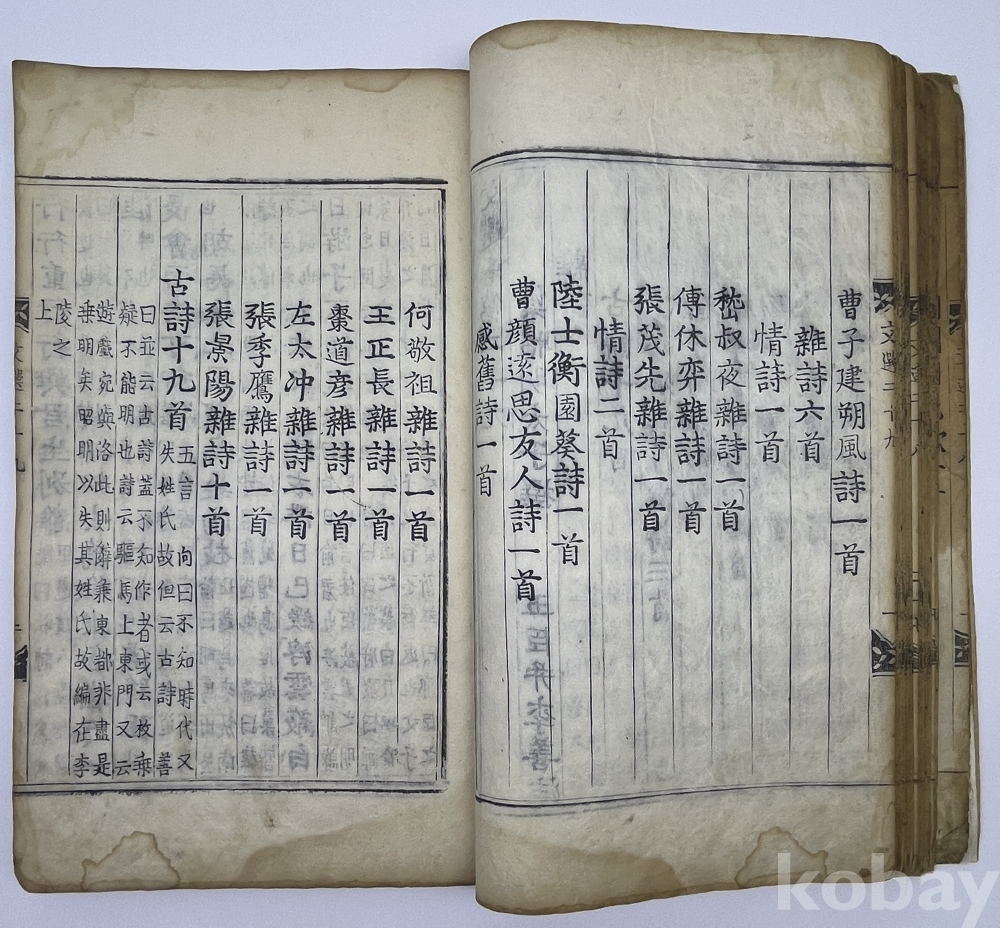 曹子建朔風詩一首
雜詩六首
情詩一首
嵇叔夜雜詩一首
傅休弈雜詩一首
張茂先雜詩一首
情詩二首
陸士衡園葵詩一首
曹顔逺思友人詩一首
感舊詩一首
何敬祖雜詩一首
王正長雜詩一首
棗道彦雜詩一首
左太冲雜詩一首
張季鷹雜詩一首
張景陽雜詩十首
古詩十九首
五言 向曰不知時代又
失姓氏故但云古詩 善
曰並云古詩蓋不知作者或云枚乗
疑不能明也詩云驅馬上東門又云
遊戲宛與洛此則辭兼東都非盡是
乗明矣昭明以失其姓氏故編在李
陵之
上
文選二十九
kobay